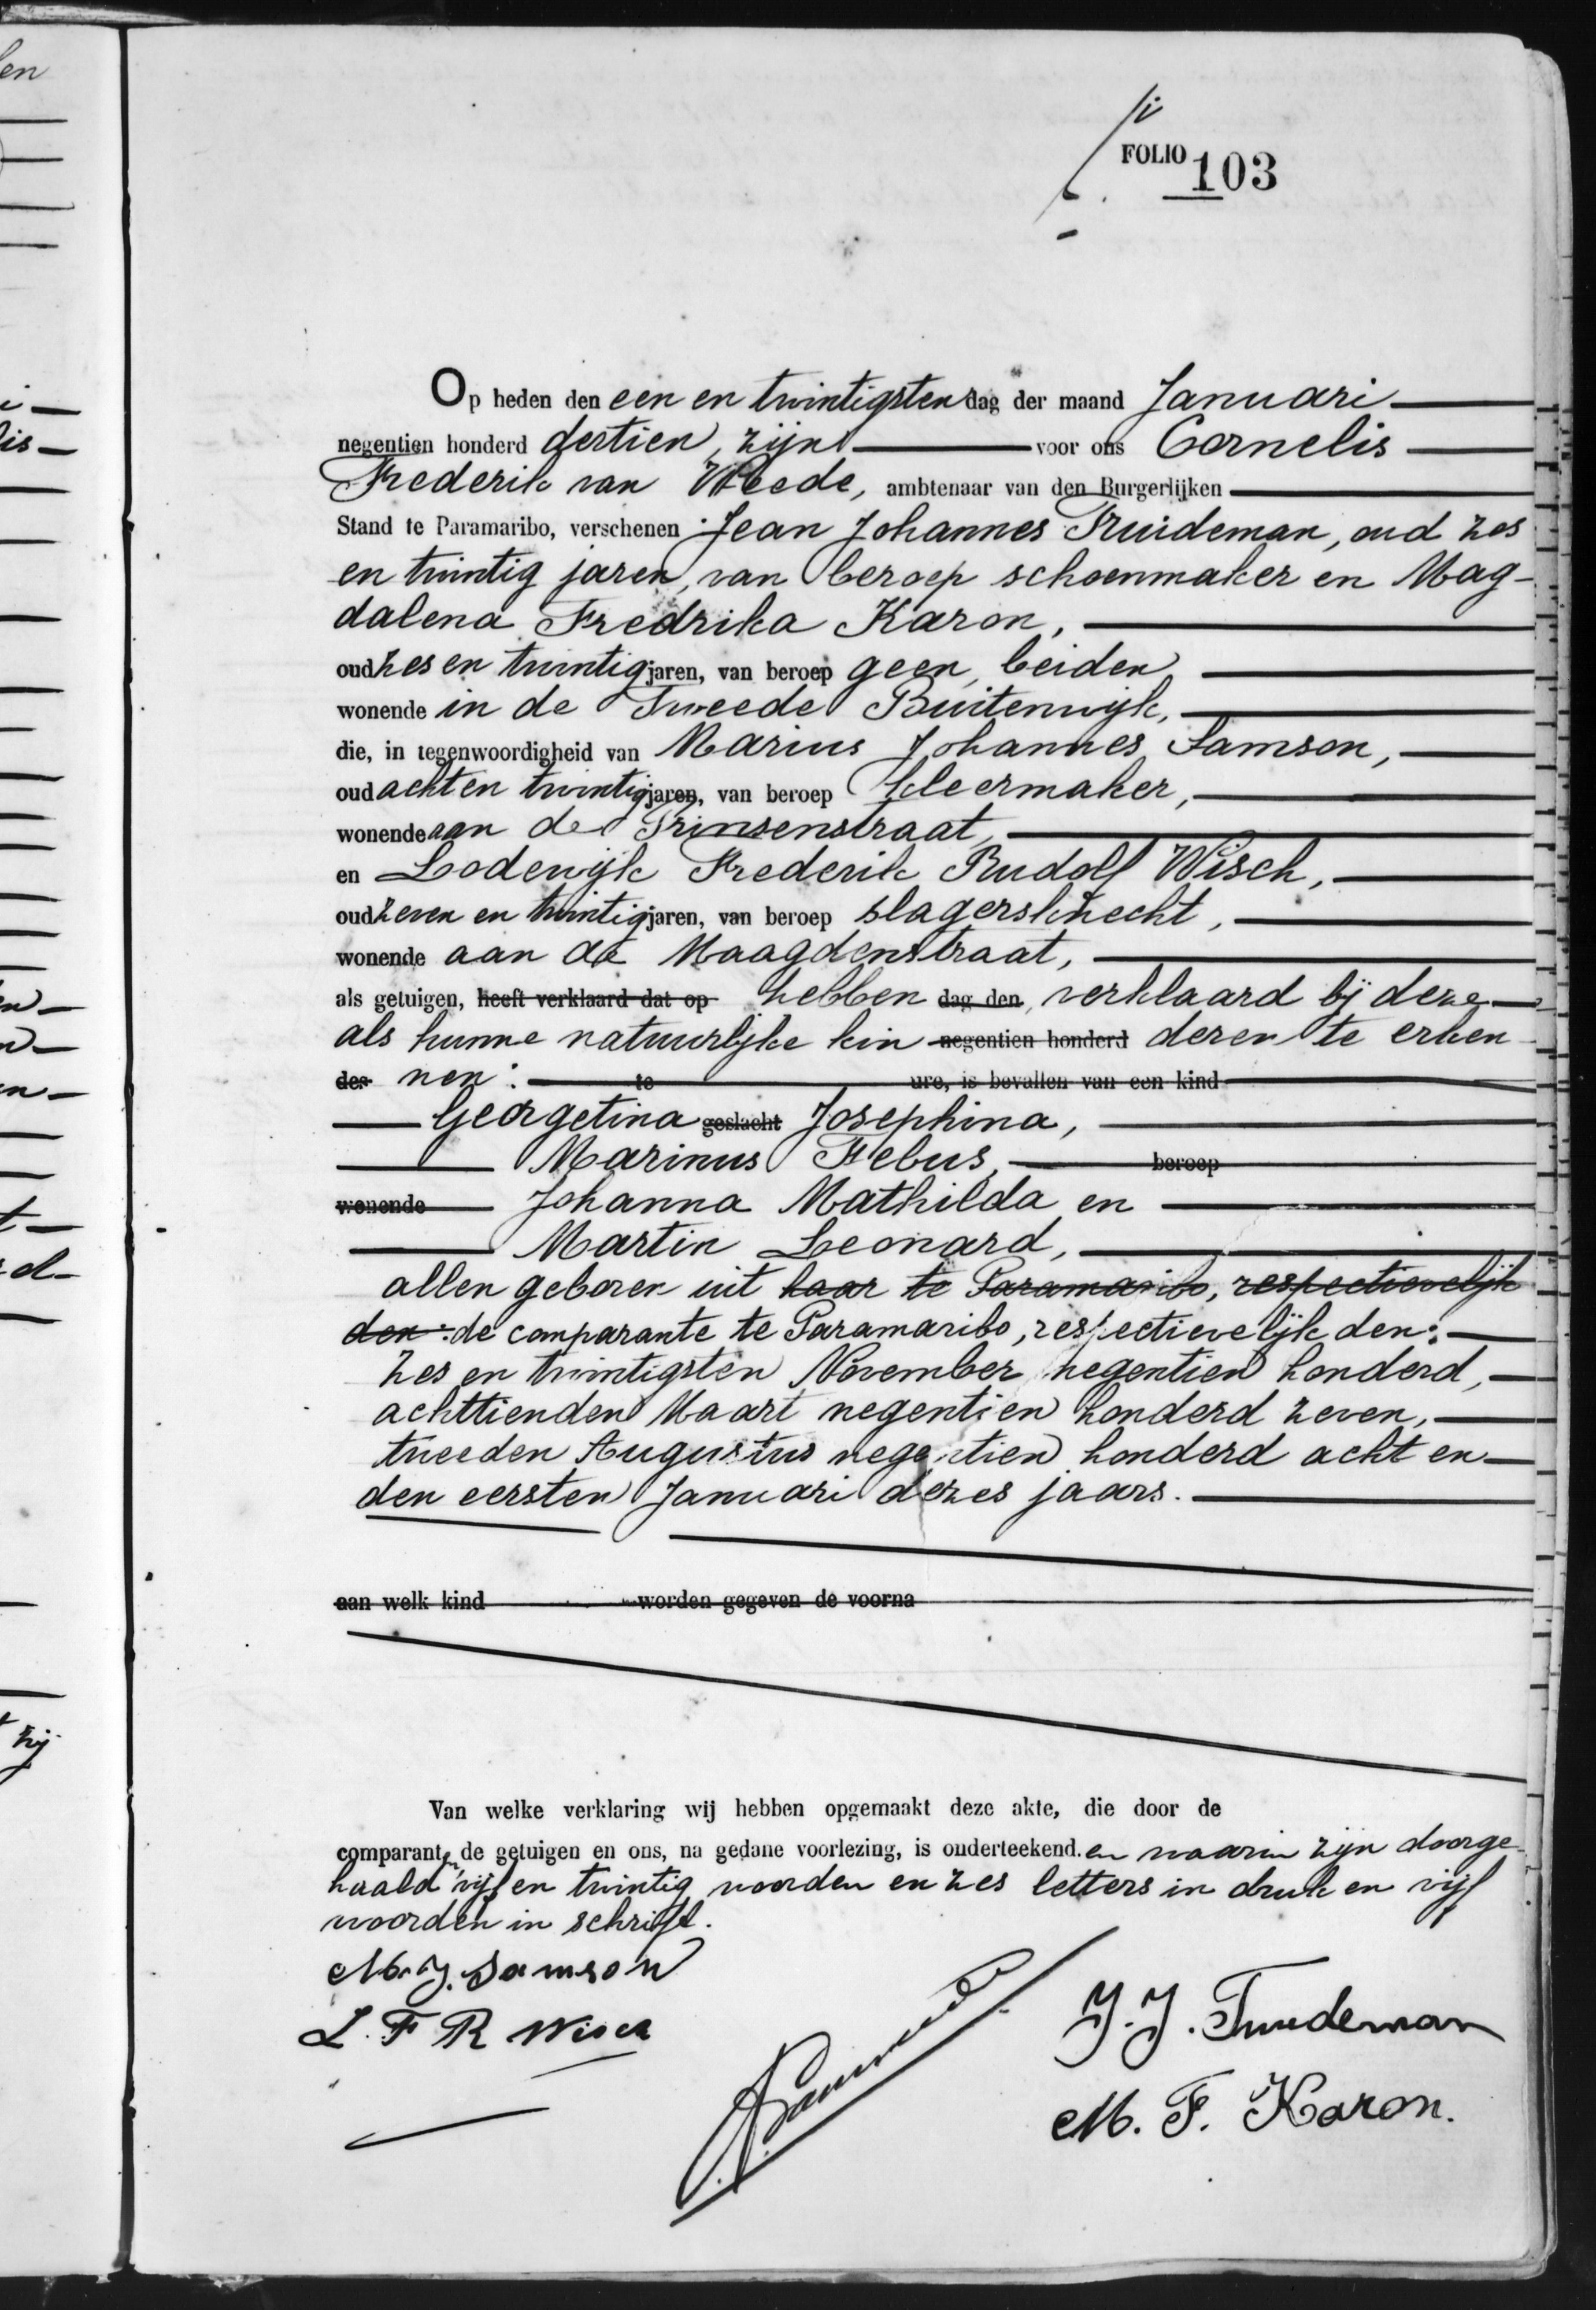 FOLIO 103
Op heden den een en twintigsten dag der maand Januari
negentien honderd dertien, zijn voor ons Cornelis
Frederik van Weede, ambtenaar van den Burgerlijken
Stand te Paramaribo, verschenen Jean Johannes Truideman, oud zes
en twintig jaren, van beroep schoenmaker en Mag-
dalena Fredrika Karon,
oud zes en twintig jaren, van beroep geen, beiden
wonende in de Tweede Buitenwijk,
die, in tegenwoordigheid van Marius Johannes Samson,
oud acht en twintig jaren, van beroep kleermaker,
wonende aan de Prinsenstraat,
en Lodewijk Frederik Rudolf Wisch,
oud zeven en twintig jaren, van beroep slagersknecht,
wonende aan de Maagdenstraat,
als getuigen, heeft verklaard dat op hebben dag den verklaard bij deze
als hunne natuurlijke kin negentien honderd deren te erken
des nen: te ure, is bevallen van een kind
Georgetina geslacht Josephina,
Marinus Febus, beroep
wonende Johanna Mathilda en
Martin Leonard,
allen geboren uit haar te Paramaribo, respectievelijk
den: de comparante te Paramaribo, respectievelijk den:
zes en twintigsten November negentien honderd,
achttienden Maart negentien honderd zeven,
tweeden Augustus negentien honderd acht en
den eersten Januari dezes jaars.
aan welk kind worden gegeven de voorna
Van welke verklaring wij hebben opgemaakt deze akte, die door de
comparanten, de getuigen en ons, na gedane voorlezing, is onderteekend. en waarin zijn doorge-
haald vijf en twintig woorden en zes letters in druk en vijf
woorden in schrift.
M. J. Samson
L. F R Wisch
J. J. Truideman
M. F. Karon.